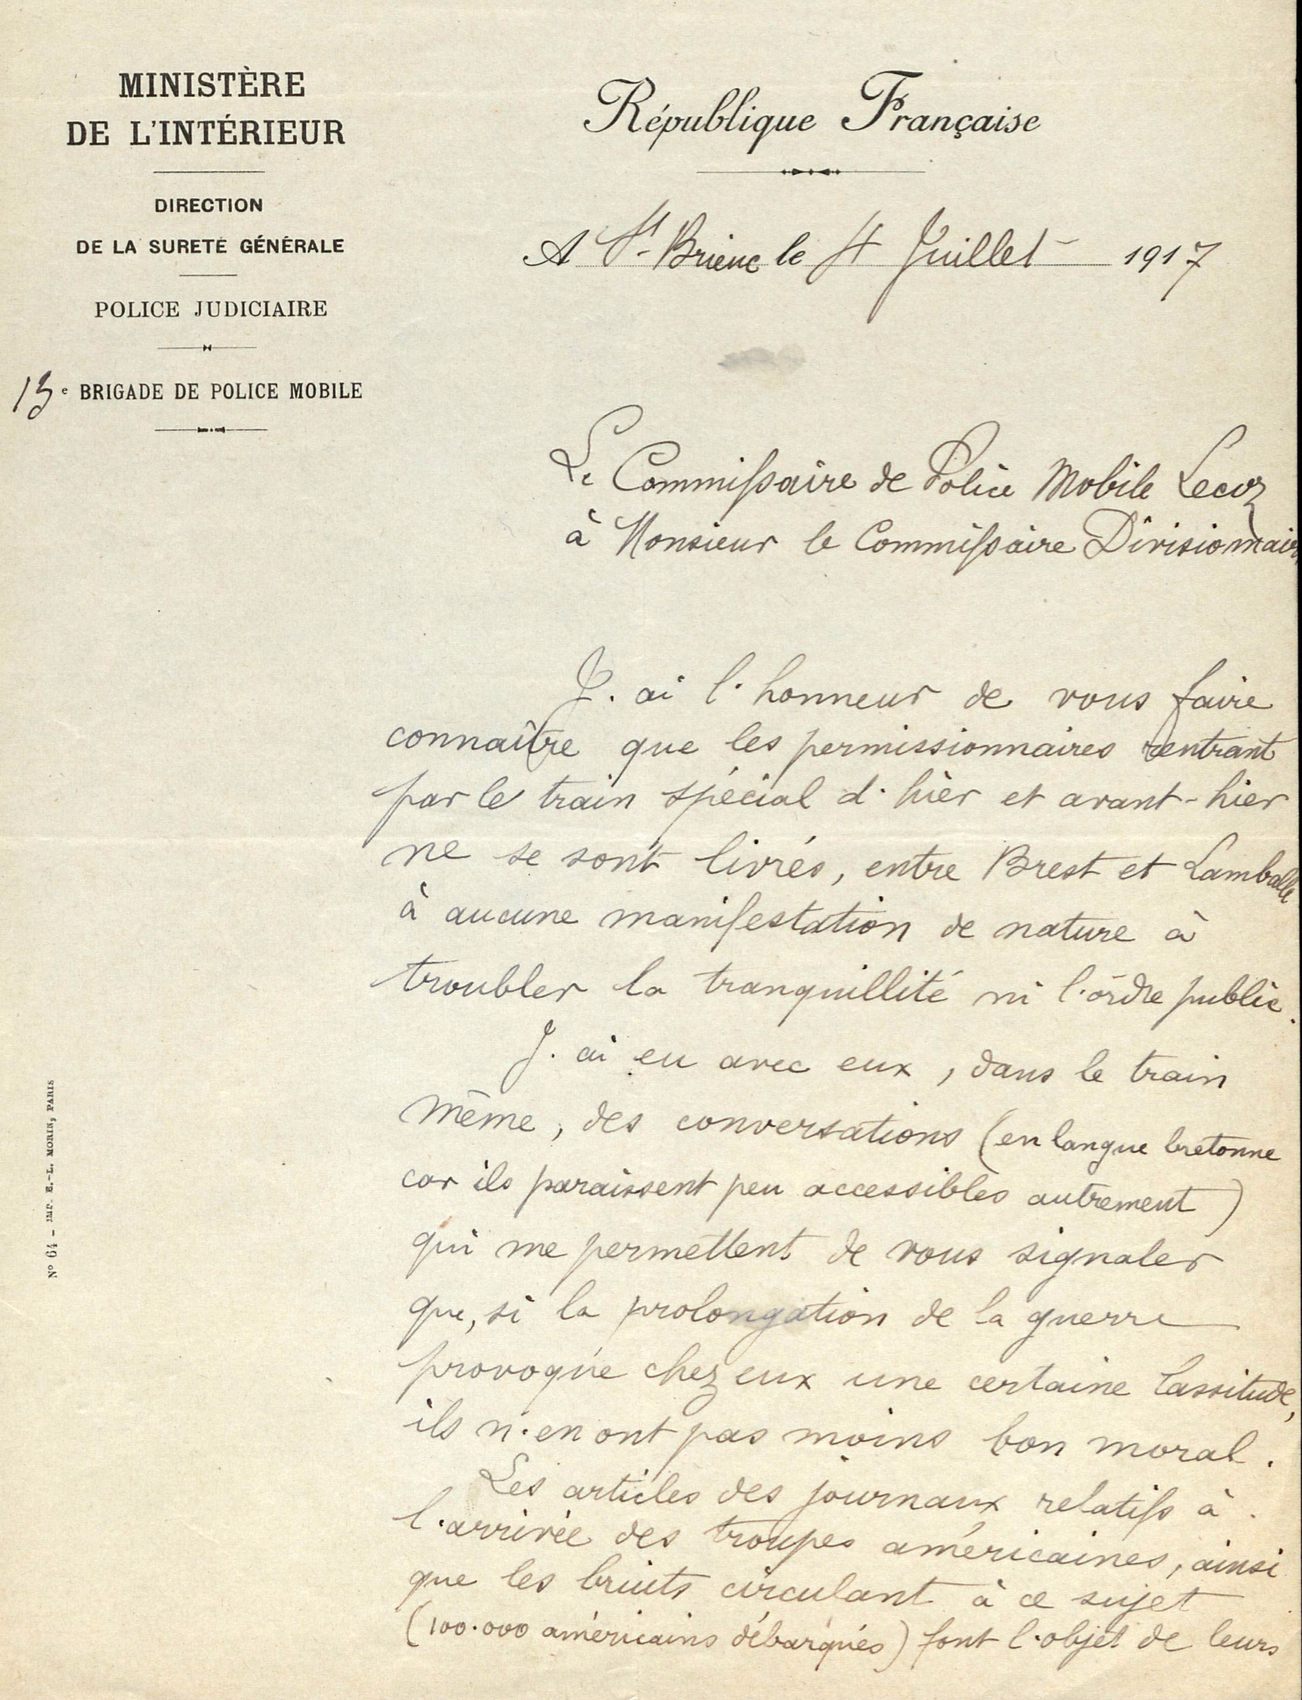 MINISTÈRE
DE L'INTÉRIEUR
DIRECTION
DE LA SURETÉ GÉNÉRALE
POLICE JUDICIAIRE
13e BRIGADE DE POLICE MOBILE
République Française
A St-Brieuc le 4 Juillet 1917
Le Commissaire de Police Mobile Lecoz
à Monsieur le Commissaire Divisionnaire
J'ai l'honneur de vous faire
connaître que les permissionnaires rentrant
par le train spécial d'hier et avant-hier
ne se sont livrés, entre Brest et Lamballe
à aucune manifestation de nature à
troubler la tranquillité ni l'ordre public.
J'ai eu avec eux, dans le train
même, des conversations (en langue bretonne
car ils paraissent peu accessibles autrement)
qui me permettent de vous signaler
que, si la prolongation de la guerre
provoque chez eux une certaine lassitude,
ils n'en ont pas moins bon moral.
Les articles des journaux relatifs à
l'arrivée des troupes américaines, ainsi
que les bruits circulant à ce sujet
(100.000 américains débarqués) font l'objet de leurs
No 64 – IMP. E.-L. MORIN, PARIS